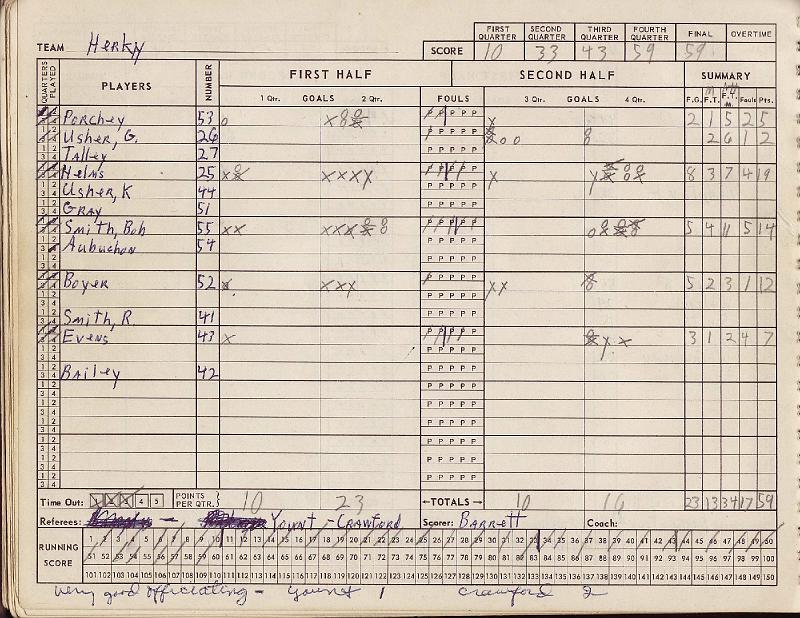 FIRST QUARTER SECOND QUARTER THIRD QUARTER FOURTH QUARTER FINAL OVERTIME
TEAM Herky SCORE 10 33 43 59 59
QUARTERS PLAYED PLAYERS NUMBER FIRST HALF SECOND HALF SUMMARY
1 Qtr. GOALS 2 Qtr. FOULS 3 Qtr. GOALS 4 Qtr. F.G. F.T. Fouls Pts.
Porchey 53 2 1 5 2 5
Usher, G. 26 2 6 1 2
Talley 27
Helms 25 8 3 7 4 19
Usher, K 44
Gray 51
Smith, Bob 55 5 4 11 5 14
Aubuchon 54
Boyer 52 5 2 3 1 12
Smith, R. 41
Evens 43 3 1 2 4 7
Bailey 42
Time Out: 1 2 3 4 5 POINTS PER QTR. 10 23 ←TOTALS→ 10 16 23 13 34 17 59
Referees: Yount - Crawford Scorer: Barrett Coach:
RUNNING SCORE
1 2 3 4 5 6 7 8 9 10 11 12 13 14 15 16 17 18 19 20 21 22 23 24 25 26 27 28 29 30 31 32 33 34 35 36 37 38 39 40 41 42 43 44 45 46 47 48 49 50
51 52 53 54 55 56 57 58 59 60 61 62 63 64 65 66 67 68 69 70 71 72 73 74 75 76 77 78 79 80 81 82 83 84 85 86 87 88 89 90 91 92 93 94 95 96 97 98 99 100
101 102 103 104 105 106 107 108 109 110 111 112 113 114 115 116 117 118 119 120 121 122 123 124 125 126 127 128 129 130 131 132 133 134 135 136 137 138 139 140 141 142 143 144 145 146 147 148 149 150
Very good officiating - Yount 1 Crawford 2